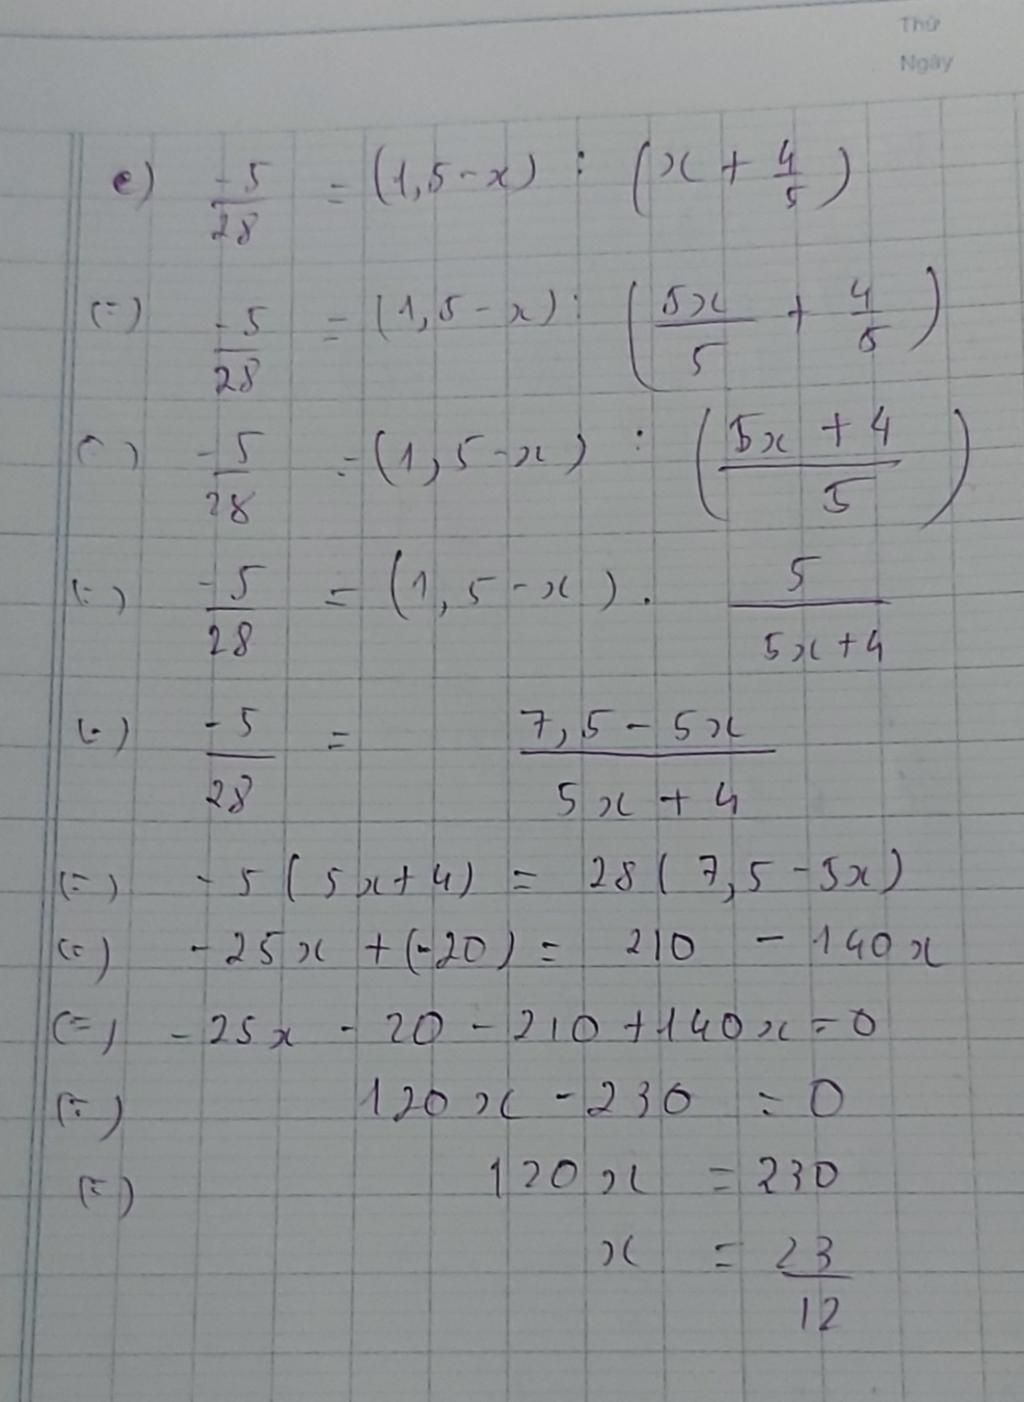 Thứ
Ngày
e) -5/28 = (1,5-x) : (x + 4/5)
(=) -5/28 = (1,5-x) : (5x/5 + 4/5)
(=) -5/28 = (1,5-x) : (5x+4/5)
(=) -5/28 = (1,5-x) . 5/5x+4
(=) -5/28 = 7,5-5x/5x+4
(=) -5(5x+4) = 28(7,5-5x)
(=) -25x+(-20) = 210 - 140x
(=) -25x - 20 - 210 + 140x = 0
(=) 120x - 230 = 0
(=) 120x = 230
x = 23/12